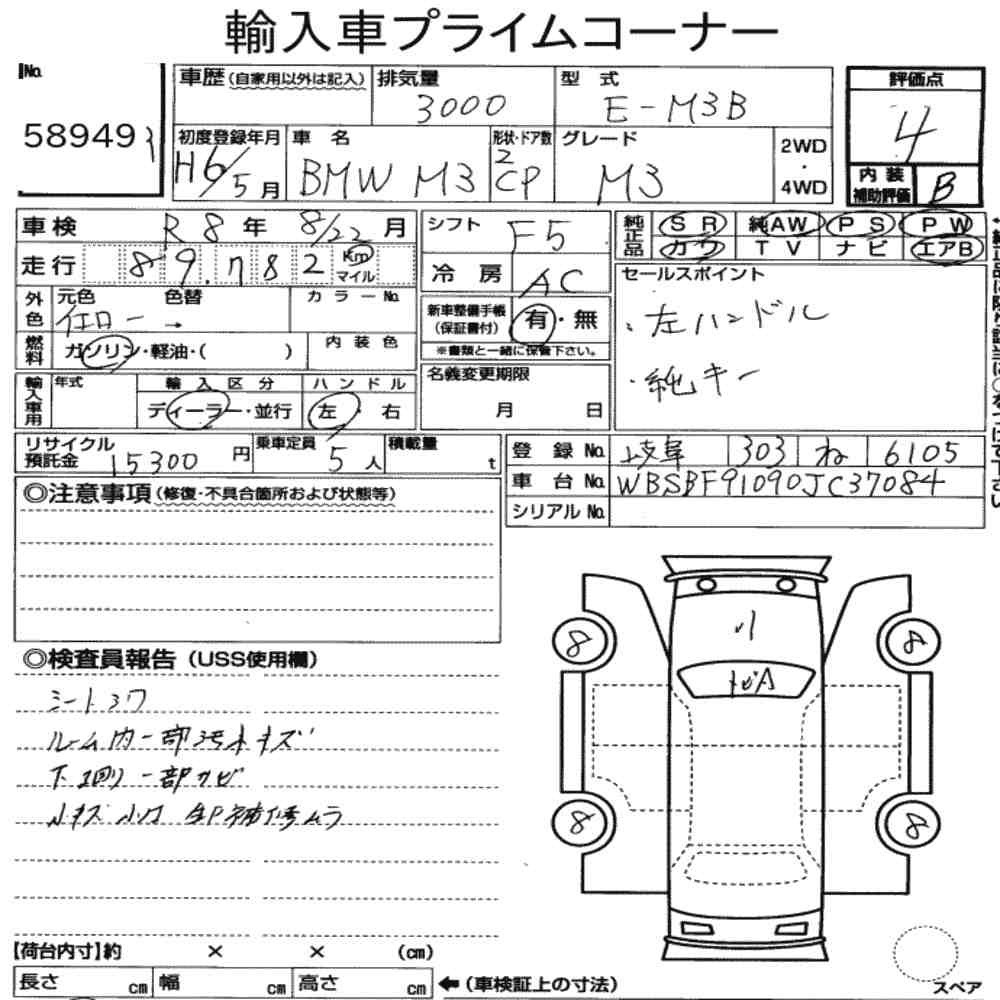 輸入車プライムコーナー
No.
58949
車歴(自家用以外は記入)
排気量
3000
型 式
E-M3B
評価点
4
初度登録年月
H6/5月
車 名
BMW M3
形状・ドア数
2
CP
グレード
M3
2WD
・
4WD
内 装
補助評価
B
車検
R8年 8/22月
シフト
F5
純正品
SR 純AW PS PW
カワ TV ナビ エアB
走行
89.782
Km
マイル
冷 房
AC
セールスポイント
・左ハンドル
・純キー
外色
元色
色替
カラーNo.
イエロー →
新車整備手帳
(保証書付)
有・無
※書類と一緒に保管下さい。
燃料
ガソリン・軽油・( )
内 装 色
輸入車用
年式
輸 入 区 分
ディーラー・並行
ハ ン ド ル
左 ・ 右
名義変更期限
月 日
リサイクル
預託金
15300円
乗車定員
5人
積載量
t
登 録 No.
岐阜 303 ね 6105
車 台 No.
WBSBF91090JC37084
シリアル No.
◎注意事項(修復・不具合箇所および状態等)
◎検査員報告(USS使用欄)
シートスワ
ルーム内一部汚れキズ
下回り一部サビ
小キズ 小凹 塗P補修ムラ
8 8
トビA
8 8
【荷台内寸】約 × × (cm)
長さ cm 幅 cm 高さ cm
←(車検証上の寸法)
スペア